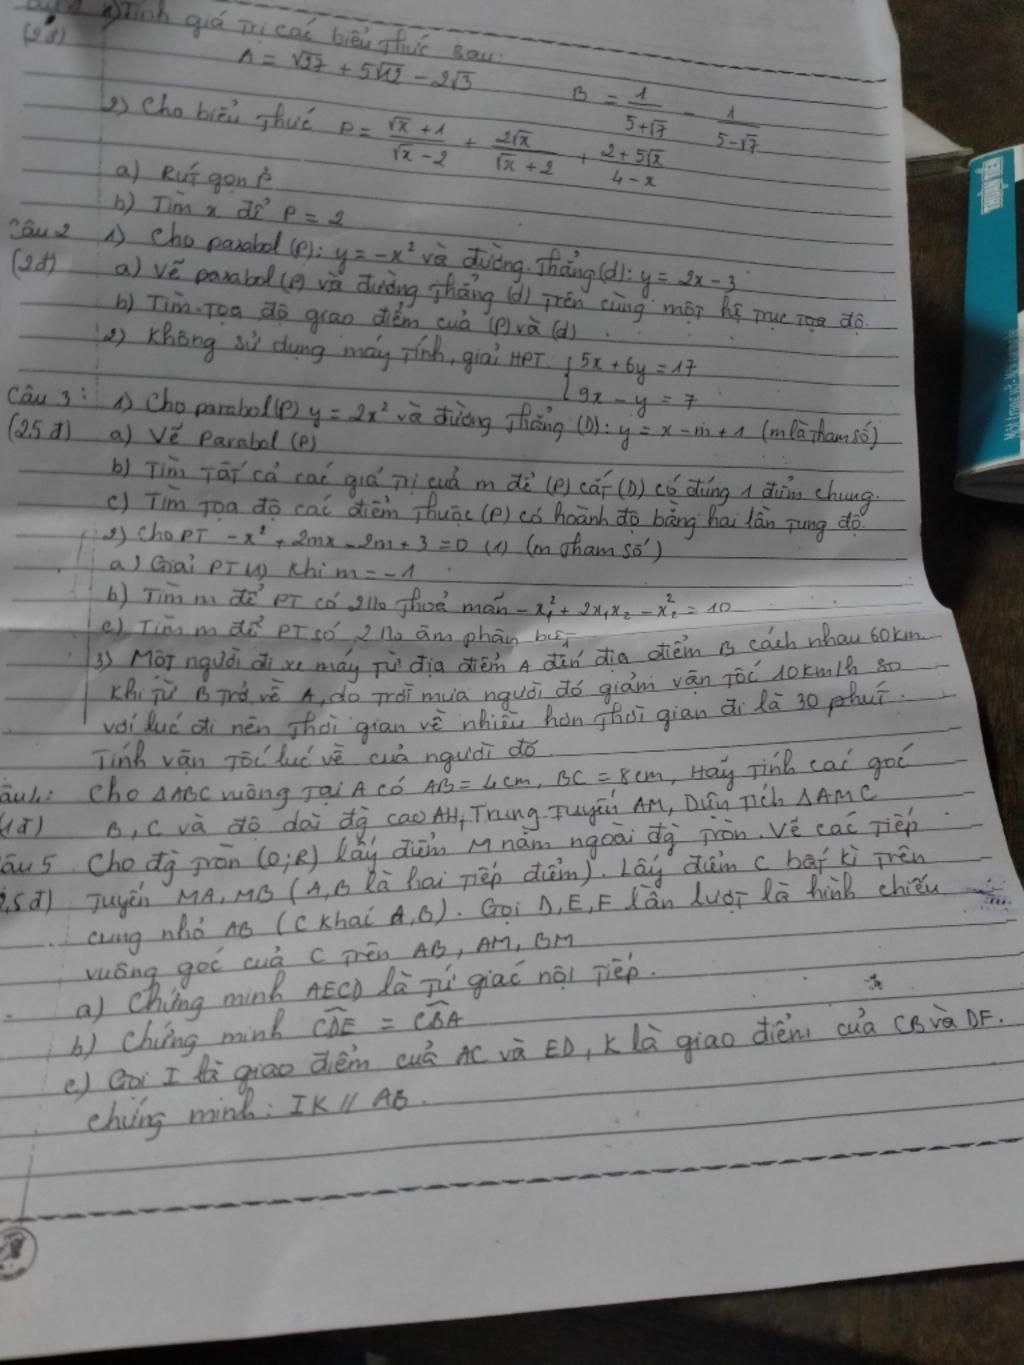 Câu 1 1) Tính giá trị các biểu thức sau:
(2đ) A = √27 + 5√12 - 2√3 B = 1/(5+√7) - 1/(5-√7)
2) Cho biểu thức P = (√x + 1)/(√x - 2) + 2√x/(√x + 2) + (2 + 5√x)/(4 - x)
a) Rút gọn P
b) Tìm x để P = 2
Câu 2 1) Cho parabol (P): y = -x² và đường thẳng (d): y = 2x - 3
(2đ) a) Vẽ parabol (P) và đường thẳng (d) trên cùng một hệ trục tọa độ.
b) Tìm tọa độ giao điểm của (P) và (d).
2) Không sử dụng máy tính, giải HPT. { 5x + 6y = 17
9x - y = 7
Câu 3: 1) Cho parabol (P) y = 2x² và đường thẳng (D): y = x - m + 1 (m là tham số)
(2,5đ) a) Vẽ Parabol (P)
b) Tìm tất cả các giá trị của m để (P) cắt (D) có đúng 1 điểm chung.
c) Tìm tọa độ các điểm thuộc (P) có hoành độ bằng hai lần tung độ.
2) Cho PT -x² + 2mx - 2m + 3 = 0 (1) (m tham số)
a) Giải PT (1) khi m = -1
b) Tìm m để PT có 2 no thoả mãn -x₁² + 2x₁x₂ - x₂² = 10
c) Tìm m để PT có 2 no âm phân biệt
3) Một người đi xe máy từ địa điểm A đến địa điểm B cách nhau 60km
Khi từ B trở về A, do trời mưa người đó giảm vận tốc 10km/h so
với lúc đi nên thời gian về nhiều hơn thời gian đi là 30 phút.
Tính vận tốc lúc về của người đó
Câu 4: Cho ΔABC vuông tại A có AB = 4cm, BC = 8cm, Hãy tính các góc
(1đ) B, C và độ dài đg cao AH, Trung tuyến AM, Diện tích ΔAMC
Câu 5 Cho đg tròn (O;R) lấy điểm M nằm ngoài đg tròn. Vẽ các tiếp
2,5đ) tuyến MA, MB (A,B là hai tiếp điểm). Lấy điểm C bất kì trên
cung nhỏ AB (C khác A,B). Gọi D,E,F lần lượt là hình chiếu
vuông góc của C trên AB, AM, BM
a) Chứng minh AECD là tứ giác nội tiếp.
b) Chứng minh CDE = CBA
c) Gọi I là giao điểm của AC và ED, K là giao điểm của CB và DF.
chứng minh: IK // AB.